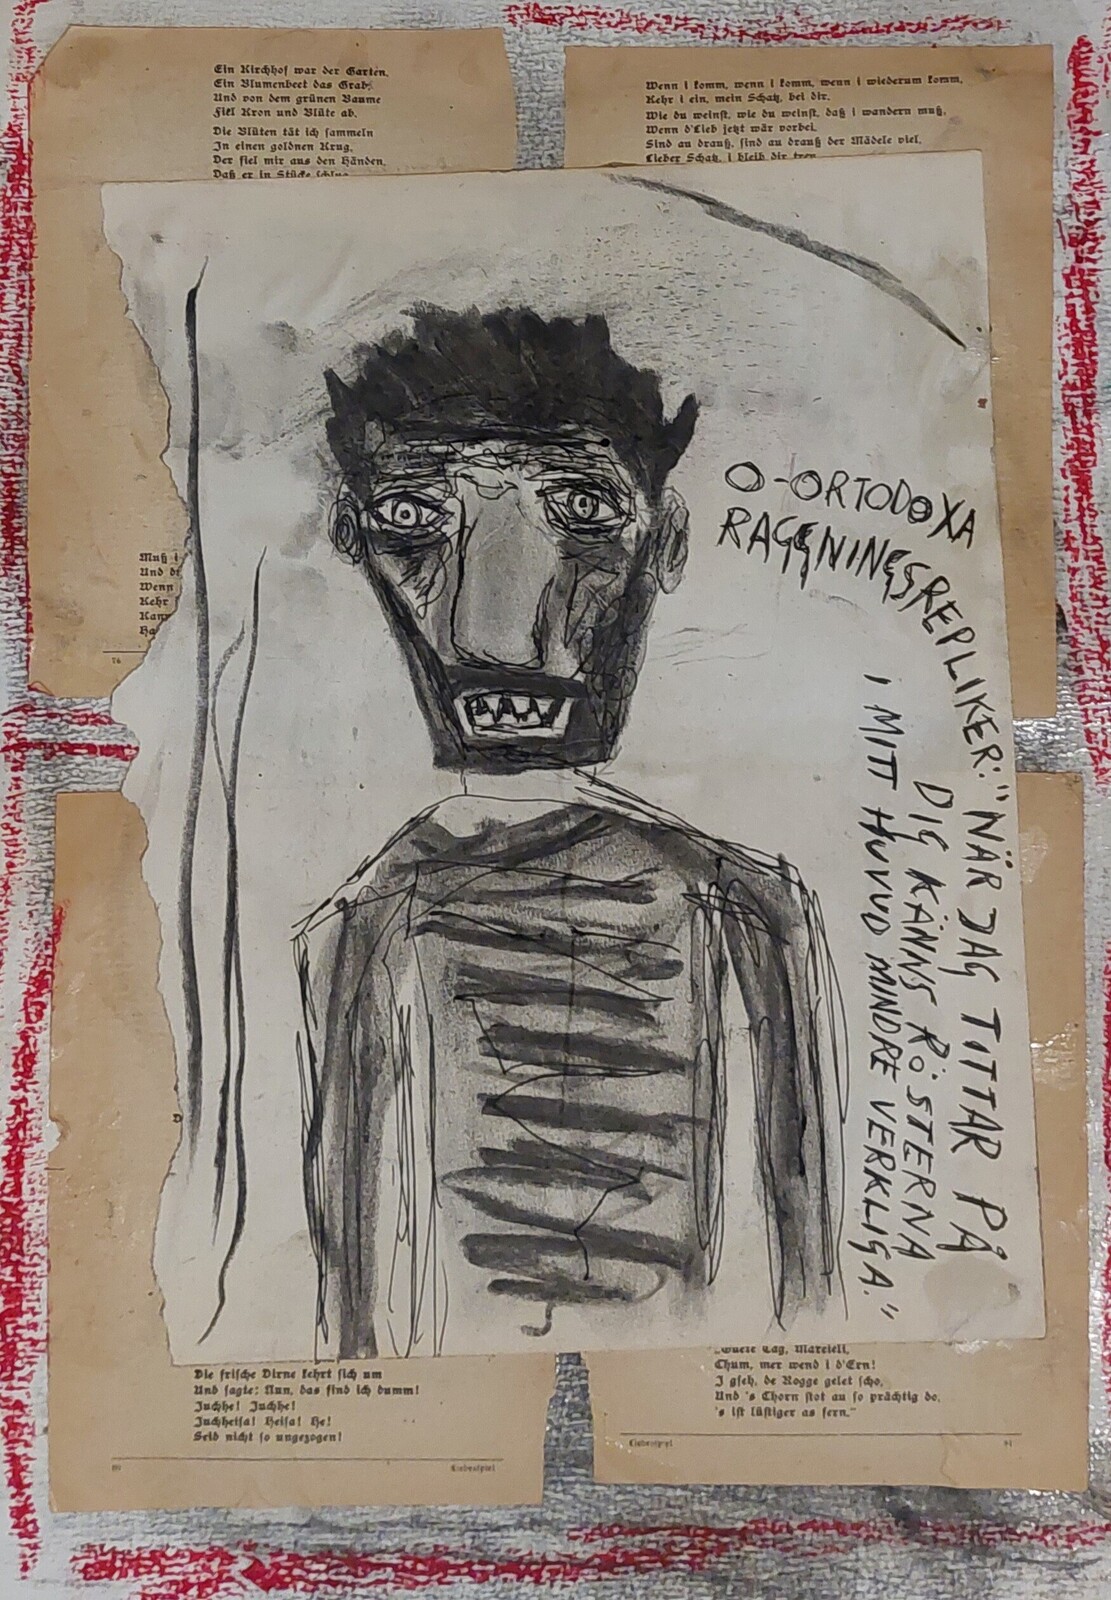 Ein Kirchhof war der Garten,
Ein Blumenbeet das Grab,
Und von dem grünen Baume
Fiel Kron und Blüte ab.
Die Blüten tät ich sammeln
In einen goldnen Krug,
Der fiel mir aus den Händen,
Daß er in Stücke schlug
Wenn i komm, wenn i komm, wenn i wiederum komm,
Kehr i ein, mein Schatz, bei dir.
Wie du weinst, wie du weinst, daß i wandern muß,
Wenn d'Lieb jetzt wär vorbei.
Sind au drauß, sind au drauß der Mädele viel,
Lieber Schatz, i bleib dir treu
O-ORTODOXA
RAGGNINGSREPLIKER: "NÄR JAG TITTAR PÅ
DIG KÄNNS RÖSTERNA
I MITT HUVUD MINDRE VERKLIGA."
Muß i
Und
Wenn
Kehr
Kann
76
D
Die frische Dirne kehrt sich um
Und sagte: Nun, das find ich dumm!
Juchhe! Juchhe!
Juchheisa! Heisa! He!
Seid nicht so ungezogen!
80
Liebesspiel
„Guete Tag, Mareieli,
Chum, mer wend i d'Ern!
I gseh, de Rogge gelet scho,
Und 's Chorn stot au so prächtig do,
's ist lüstiger as fern."
Liebesspiel